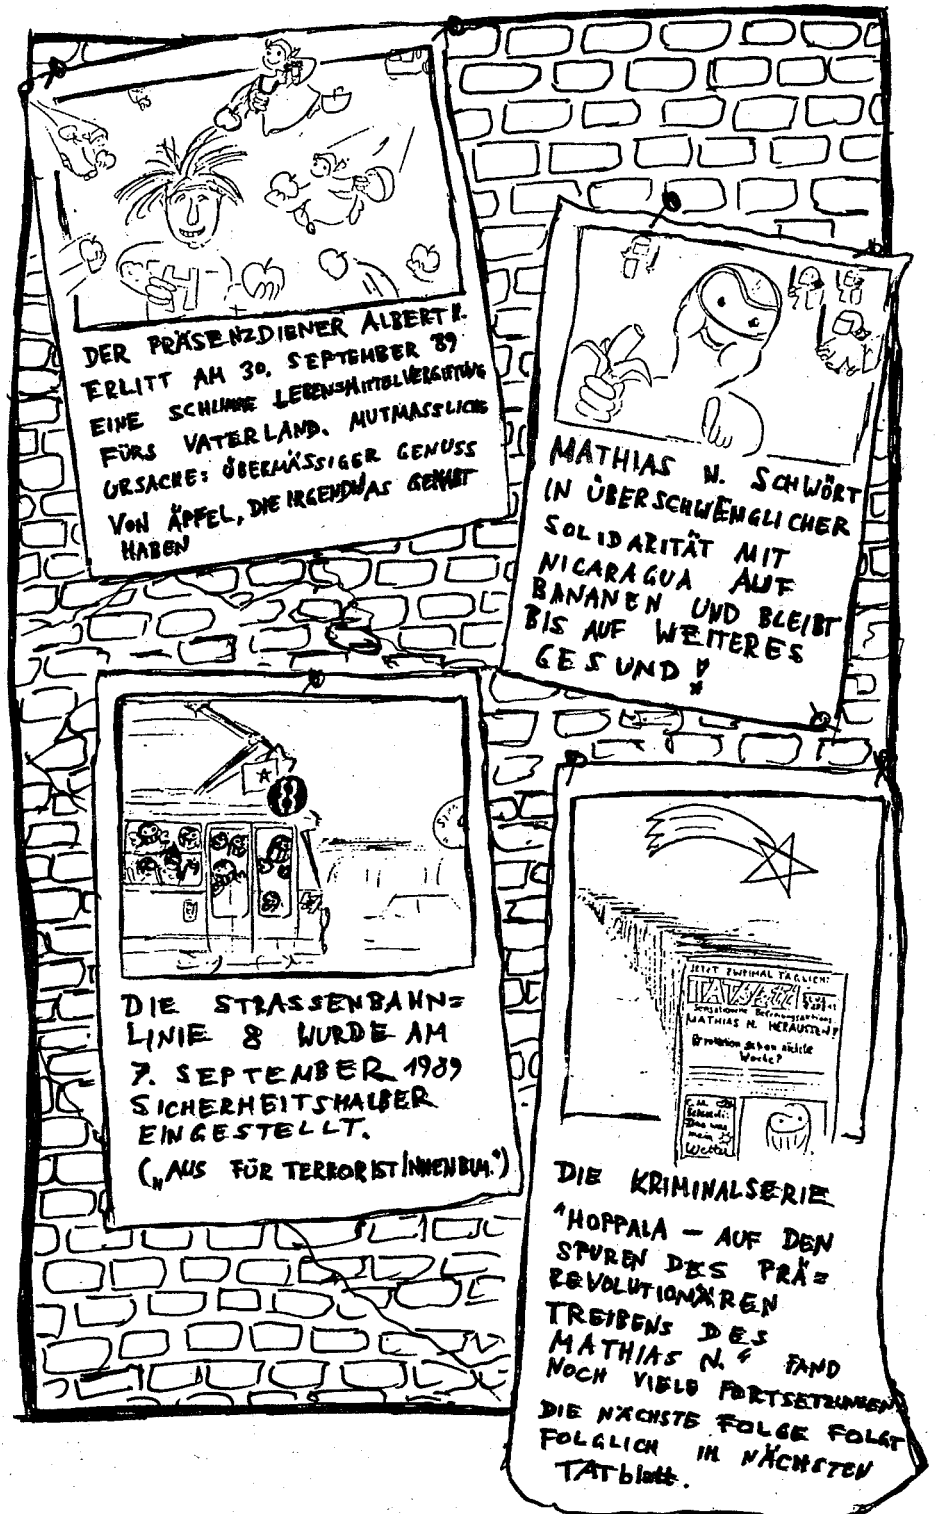 DER PRÄSENZDIENER ALBERT K.
ERLITT AM 30. SEPTEMBER '89
EINE SCHLIMME LEBENSMITTELVERGIFTUNG
FÜRS VATERLAND. MUTMASSLICHE
URSACHE: ÜBERMÄSSIGER GENUSS
VON ÄPFEL, DIE IRGENDWAS GEHABT
HABEN
MATHIAS N. SCHWÖRT
IN ÜBERSCHWENGLICHER
SOLIDARITÄT MIT
NICARAGUA AUF
BANANEN UND BLEIBT
BIS AUF WEITERES
GESUND!
8
DIE STRASSENBAHN=
LINIE 8 WURDE AM
7. SEPTEMBER 1989
SICHERHEITSHALBER
EINGESTELLT.
("AUS FÜR TERRORISTINNENBIM.")
JETZT ZWEIMAL TÄGLICH:
TATblatt
Sensationelle Befreiungsaktion:
MATHIAS N. HERAUSSEN!
Revolution schon nächste
Woche?
Das war
mein
Wetter
DIE KRIMINALSERIE
"HOPPALA – AUF DEN
SPUREN DES PRÄ=
REVOLUTIONÄREN
TREIBENS DES
MATHIAS N." FAND
NOCH VIELE FORTSETZUNGEN
DIE NÄCHSTE FOLGE FOLGT
FOLGLICH IM NÄCHSTEN
TATblatt.